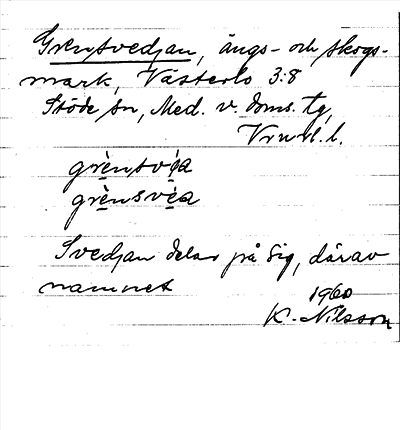 Grensvedjan, ängs- och skogs-
mark, Västerlo 3:8
Stöde sn, Med. v. doms. tg,
Vrnl. l.
grènsvé̱a
grènsvè̱a
Svedjan delar på sig, därav
namnet
1960
K. Nilsson